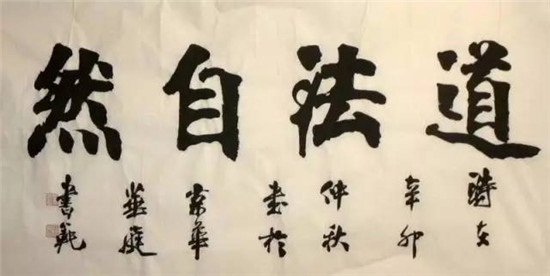 道法自然
時在
辛卯
仲秋
書於
京華
華庭
書苑